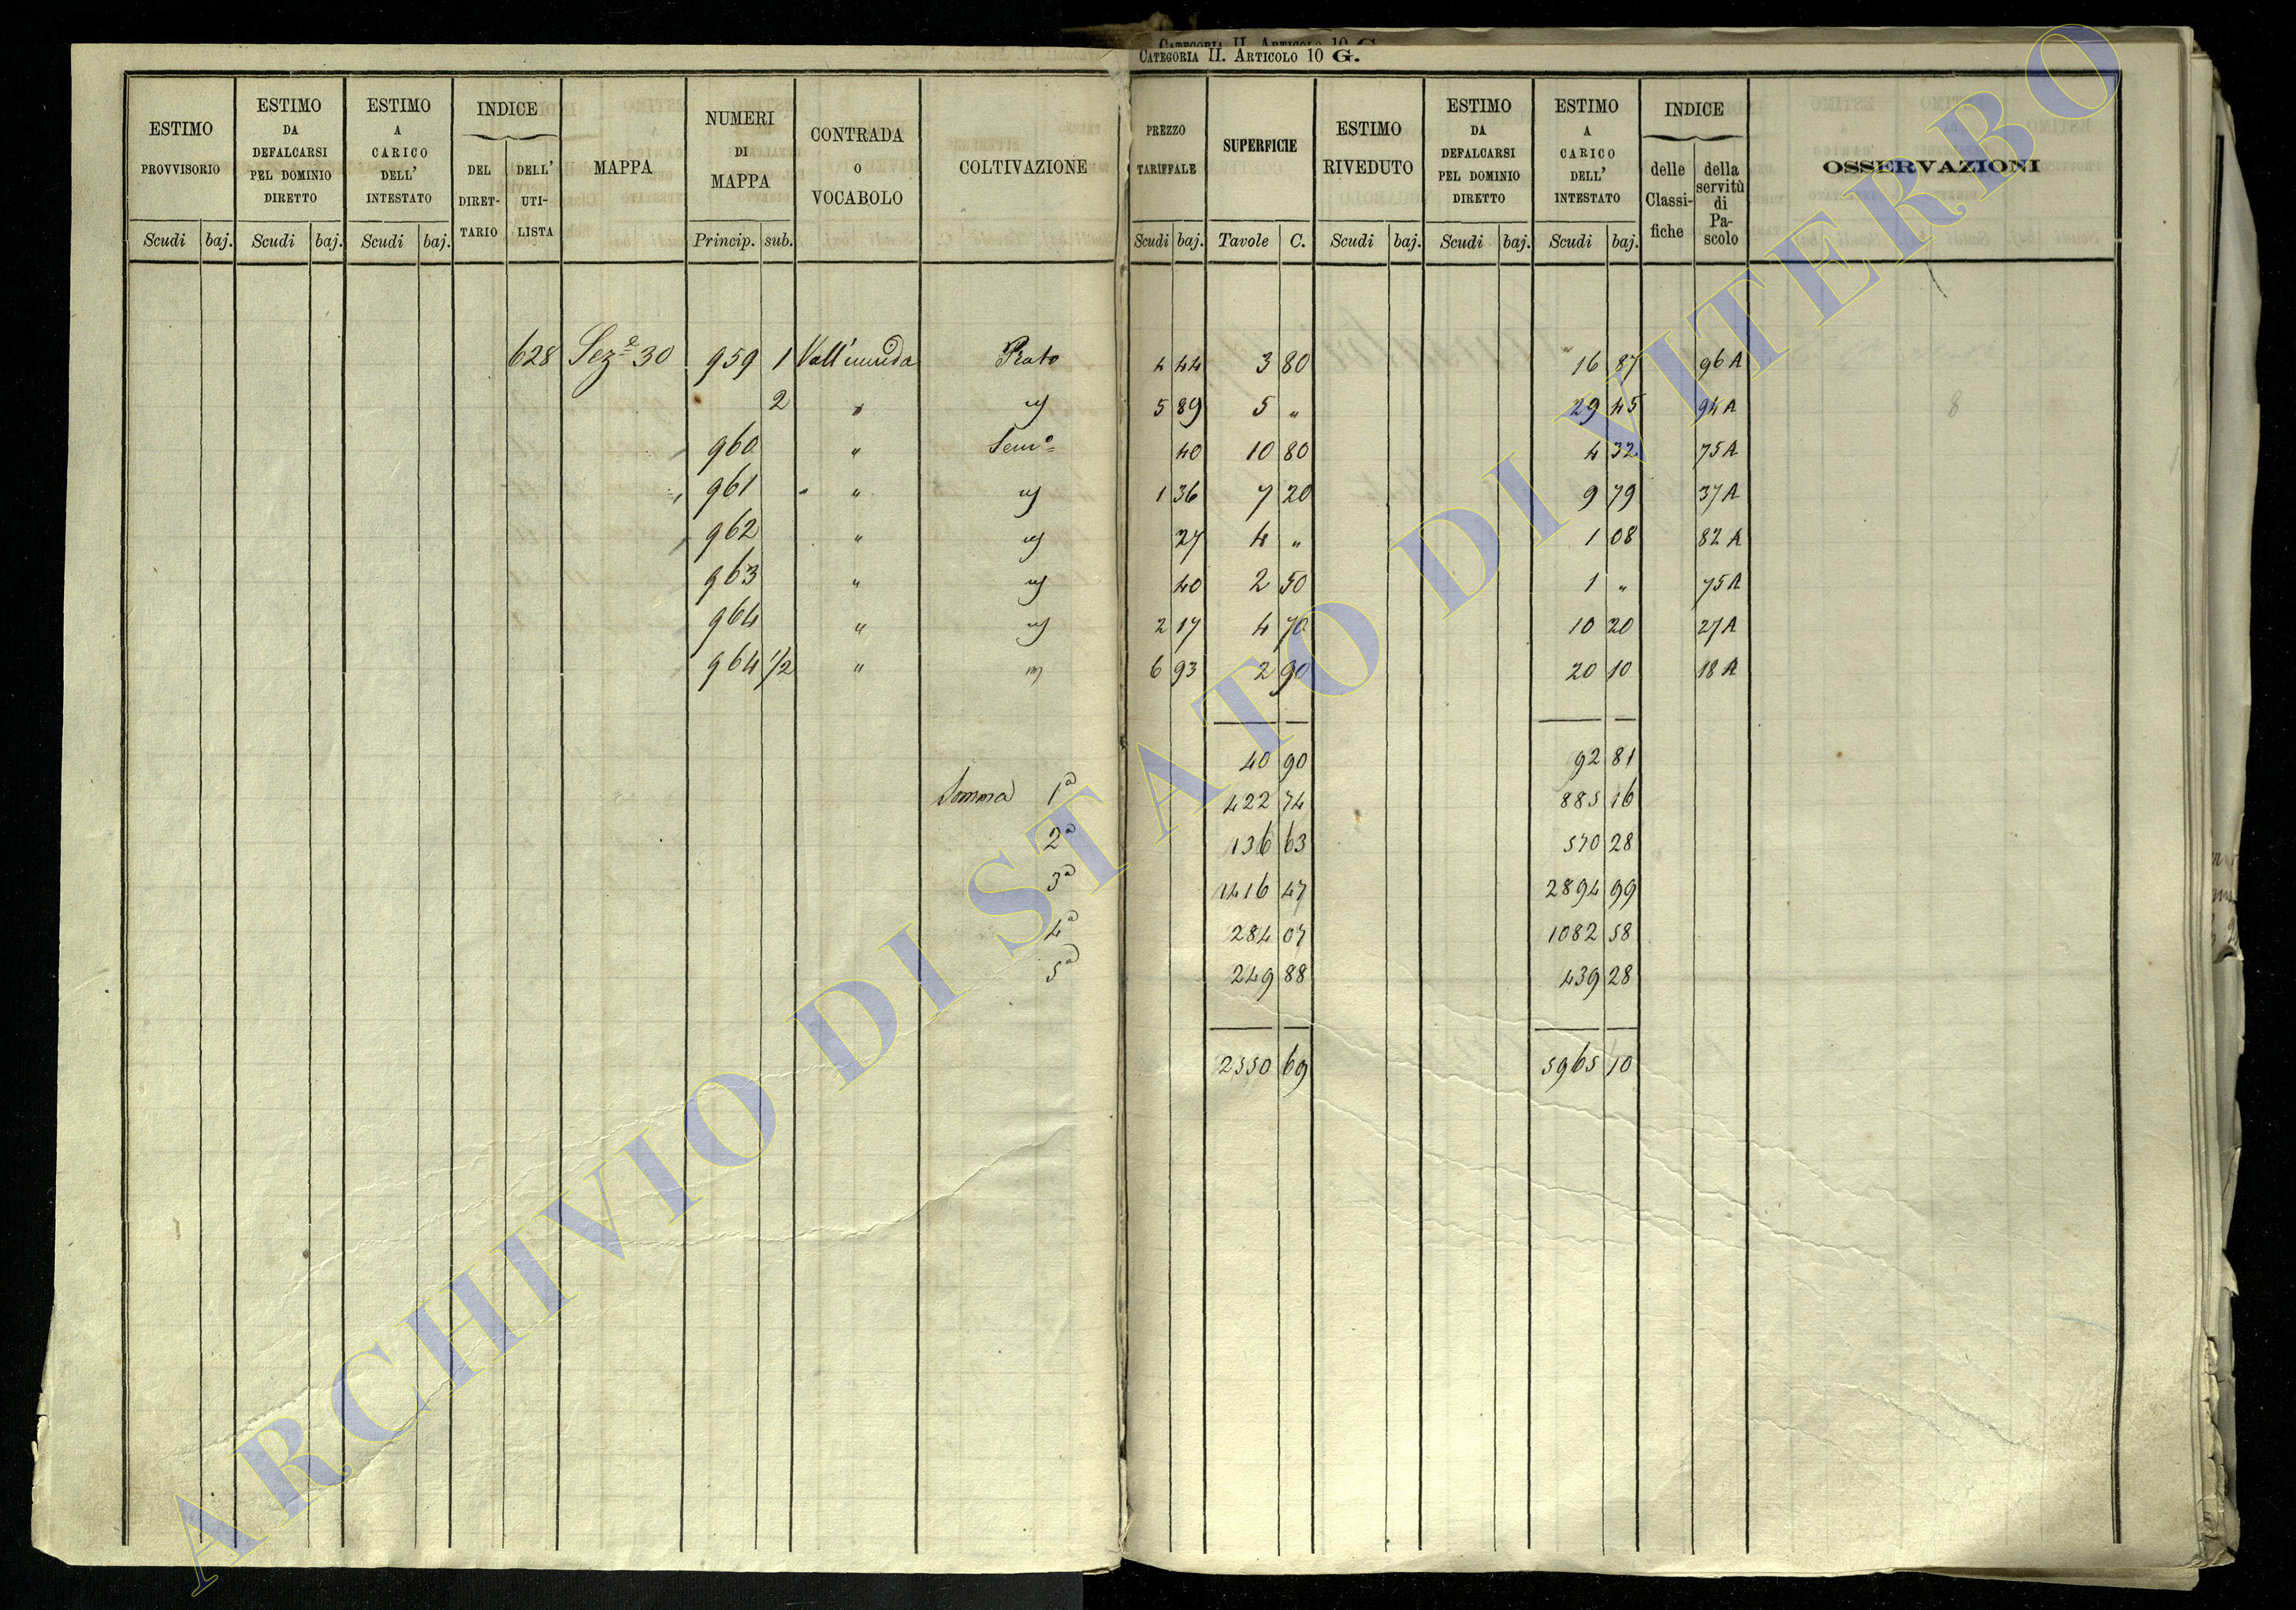 CATEGORIA II. ARTICOLO 10 G.
ESTIMO PROVVISORIO
ESTIMO DA DEFALCARSI PEL DOMINIO DIRETTO
ESTIMO A CARICO DELL' INTESTATO
INDICE
DEL DIRET-TARIO
DELL' UTI-LISTA
MAPPA
NUMERI DI MAPPA
CONTRADA O VOCABOLO
COLTIVAZIONE
PREZZO TARIFFALE
SUPERFICIE
ESTIMO RIVEDUTO
ESTIMO DA DEFALCARSI PEL DOMINIO DIRETTO
ESTIMO A CARICO DELL' INTESTATO
INDICE
delle Classi-fiche
della servitù di Pa-scolo
OSSERVAZIONI
Scudi baj. Scudi baj. Scudi baj. Princip. sub. Scudi baj. Tavole C. Scudi baj. Scudi baj. Scudi baj.
628 Sez.e 30 959 1 Vall'umida Prato 4 44 3 80 16 87 96 A
2 " 5 89 5 " 29 45 94 A
8
960 " Sem.o 40 10 80 4 32 75 A
961 " 1 36 7 20 9 79 37 A
962 " 27 4 " 1 08 82 A
963 " 40 2 50 1 " 75 A
964 " 2 17 4 70 10 20 27 A
964 1/2 " 6 93 2 90 20 10 18 A
40 90 92 81
Somma 1a 422 74 885 16
2a 136 63 570 28
3a 1416 47 2894 99
4a 284 07 1082 58
5a 249 88 439 28
2550 69 5965 10
ARCHIVIO DI STATO DI VITERBO